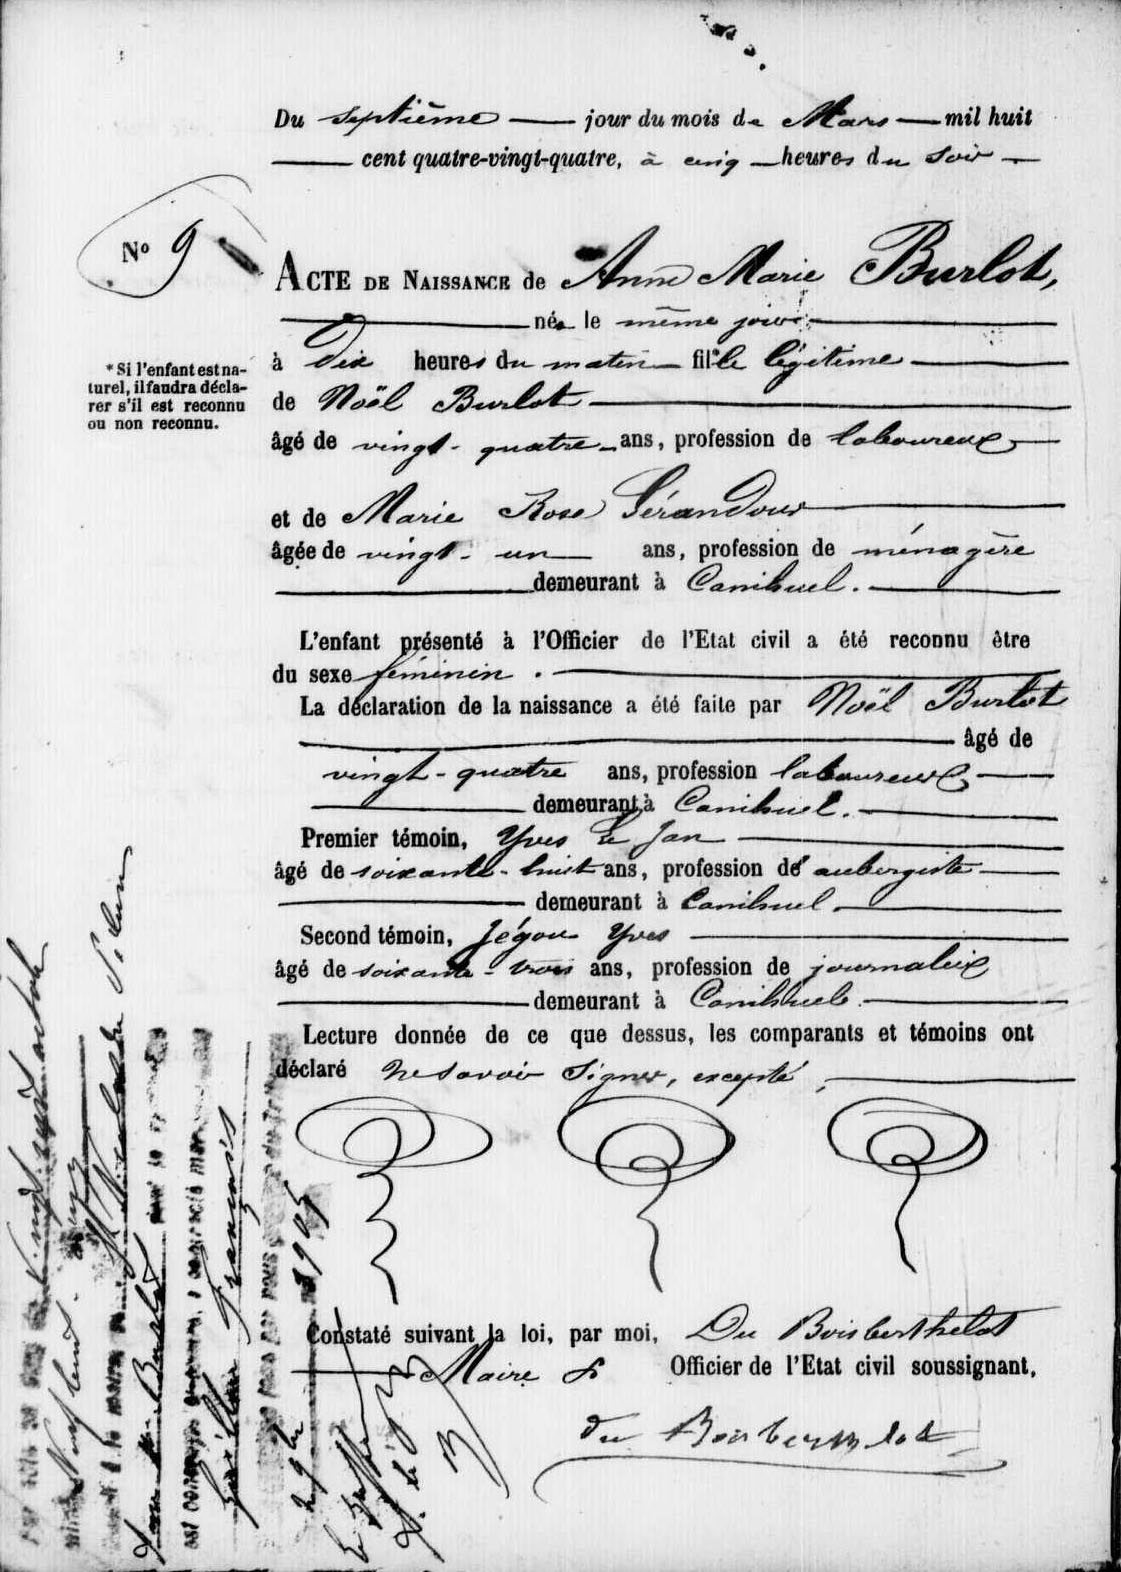 Du septième jour du mois de Mars mil huit
cent quatre-vingt-quatre, à cinq heures du Soir
N° 9
ACTE DE NAISSANCE de Anne Marie Burlot,
née le même jour
* Si l'enfant est na-
turel, il faudra décla-
rer s'il est reconnu
ou non reconnu.
à Dix heures du matin fille légitime
de Noël Burlot
âgé de vingt-quatre ans, profession de laboureur
et de Marie Rose Gérandour
âgée de vingt-un ans, profession de ménagère
demeurant à Canihuel.
L'enfant présenté à l'Officier de l'Etat civil a été reconnu être
du sexe féminin.
La déclaration de la naissance a été faite par Noël Burlot
âgé de
vingt-quatre ans, profession laboureur
demeurant à Canihuel.
Premier témoin, Yves Le Jan
âgé de soixante-huit ans, profession de aubergiste
demeurant à Canihuel.
Second témoin, Jégou Yves
âgé de soixante-trois ans, profession de journalier
demeurant à Canihuel.
Lecture donnée de ce que dessus, les comparants et témoins ont
déclaré ne savoir signer, excepté,
Constaté suivant la loi, par moi, Du Boisberthelot
Maire & Officier de l'Etat civil soussignant,
du Boisberthelot
St Nicolas du Pélem
Burlot
François
1905